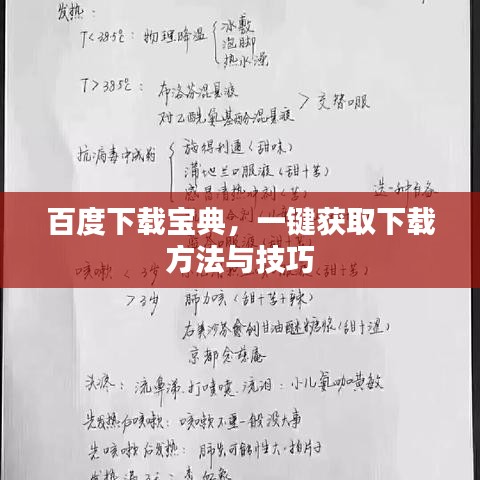 发热:
T<38.5℃: 物理降温 { 冰敷
泡脚
热水澡
T>38.5℃: 布洛芬混悬液
对乙酰氨基酚混悬液 > 交替口服
抗病毒中成药 { 施得利通(甜味)
蒲地兰口服液(甜+苦)
感冒清热冲剂(苦) 选一种自备
百度下载宝典,一键获取下载
方法与技巧
咳嗽 < 3岁
>3岁 肺力咳(甜+苦+辣)
右美沙芬愈创甘油醚糖浆(甜+涩)
京都念慈庵
头疼: 流鼻涕.打喷嚏.流泪: 小儿氨咖黄敏
先发热后咳嗽: 咳嗽不重一般没大事
先咳嗽后发热: 肺炎可能性大-拍片子